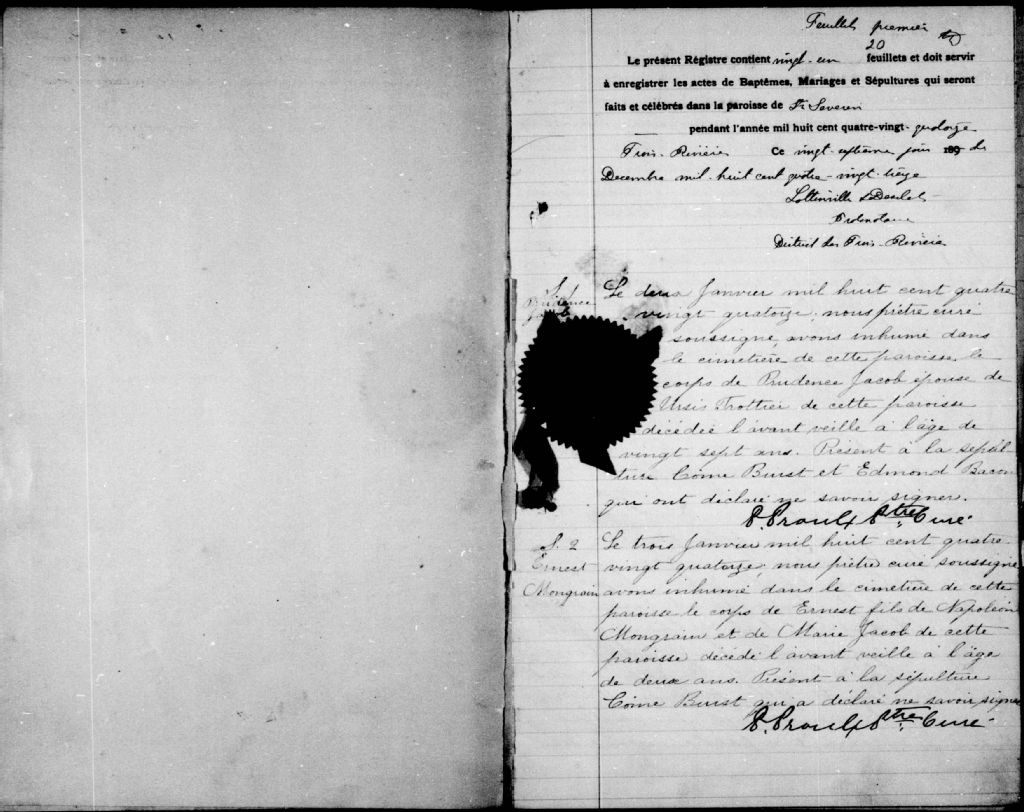 Feuillet premier
20
Le présent Régistre contient vingt-un feuillets et doit servir
à enregistrer les actes de Baptêmes, Mariages et Sépultures qui seront
faits et célébrés dans la paroisse de St Severin
pendant l'année mil huit cent quatre-vingt-quatorze
Trois-Rivières Ce vingt-septième jour 189 de
Decembre mil-huit cent quatre-vingt-treize
Lottinville & Desilets
Protonotaire
District des Trois-Rivières
S. 1
Prudence
Jacob
Le deux Janvier mil huit cent quatre
vingt quatorze nous prêtre curé
soussigné, avons inhumé dans
le cimetière de cette paroisse, le
corps de Prudence Jacob épouse de
Ursis Trottier de cette paroisse
décédée l'avant veille à l'âge de
vingt sept ans. Présent à la sépul-
ture Côme Buist et Edmond Bacon
qui ont déclaré ne savoir signer.
P. Proulx Ptre. Curé.
S. 2
Ernest
Mongrain
Le trois Janvier mil huit cent quatre-
vingt quatorze, nous prêtre curé soussigné
avons inhumé dans le cimetière de cette
paroisse le corps de Ernest fils de Napoléon
Mongrain et de Marie Jacob de cette
paroisse décédé l'avant veille à l'âge
de deux ans. Présent à la sépulture
Côme Buist qui a déclaré ne savoir signer
P. Proulx Ptre. Curé.